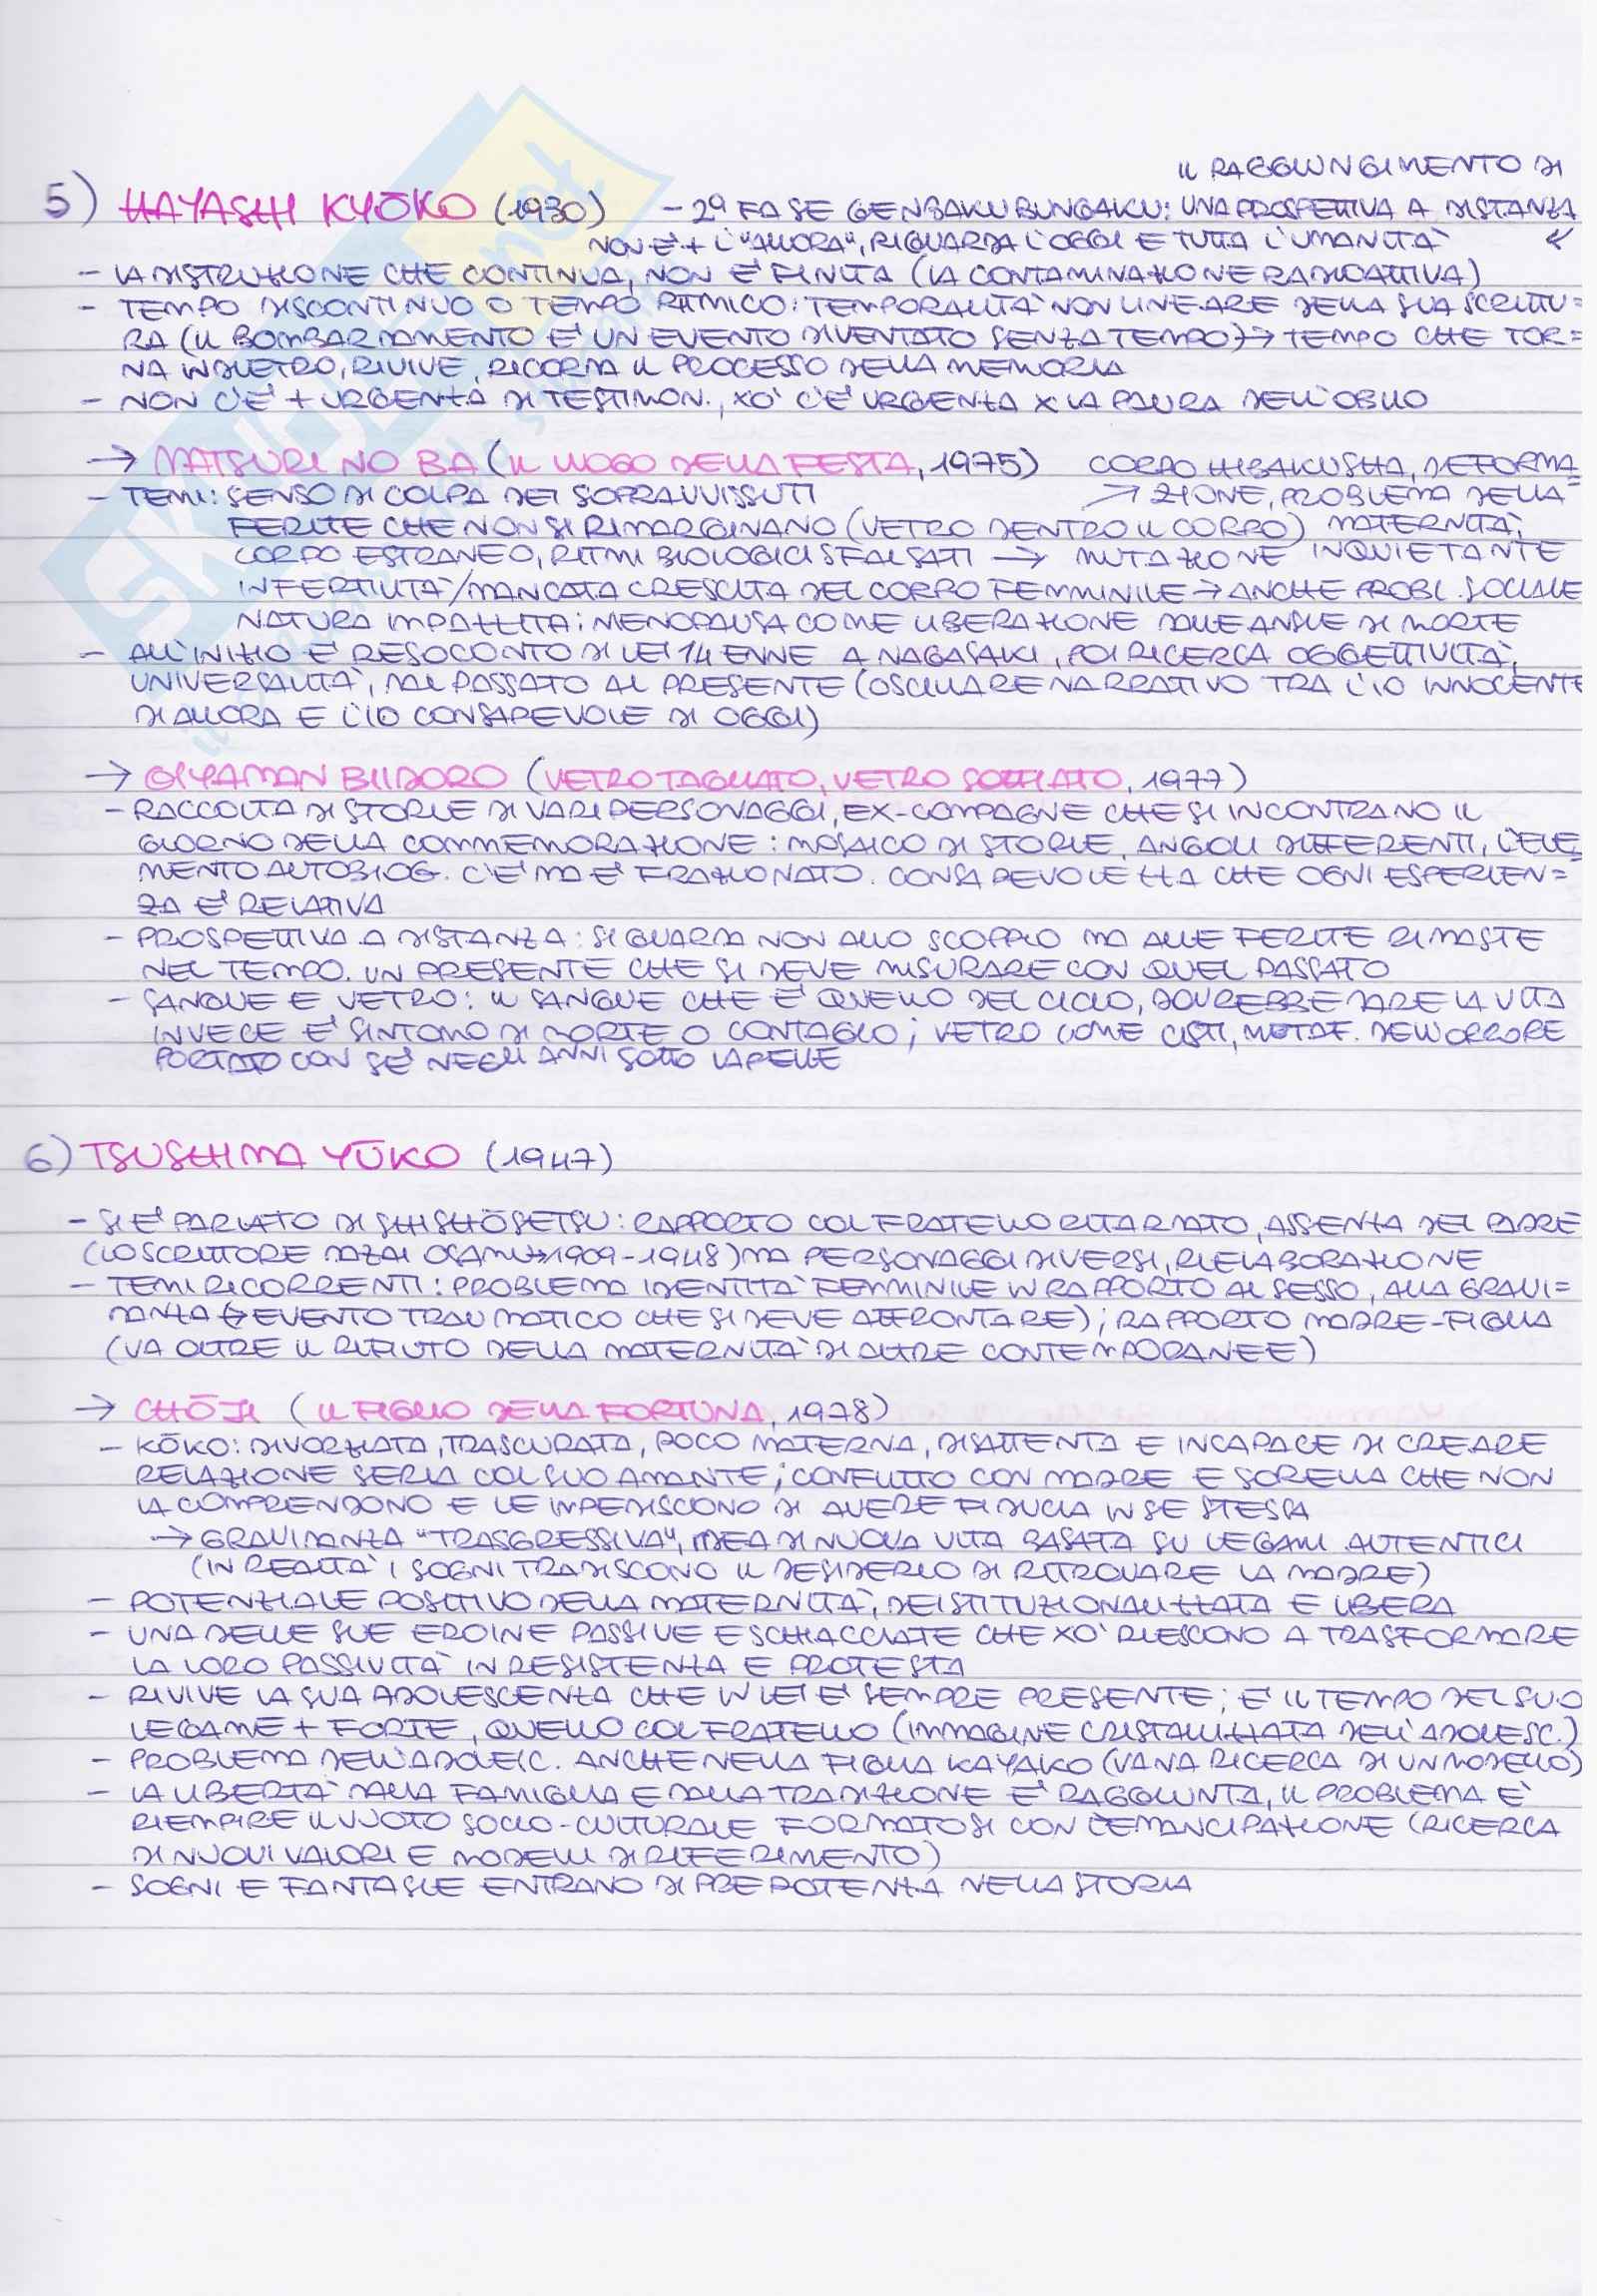 IL RAGGIUNGIMENTO DI
5) HAYASHI KYŌKO (1930) - 2ª FASE GENBAKU BUNGAKU: UNA PROSPETTIVA A DISTANZA
NON È + L'"ALLORA", RIGUARDA L'OGGI E TUTTA L'UMANITÀ
- LA DISTRUZIONE CHE CONTINUA, NON È FINITA (LA CONTAMINAZIONE RADIOATTIVA)
- TEMPO DISCONTINUO O TEMPO RITMICO: TEMPORALITÀ NON LINEARE DELLA SUA SCRITTU=
RA (IL BOMBARDAMENTO È UN EVENTO DIVENTATO SENZA TEMPO) → TEMPO CHE TOR=
NA INDIETRO, RIVIVE, RICORDA IL PROCESSO DELLA MEMORIA
- NON C'È + URGENZA DI TESTIMON., XO' C'È URGENZA X LA PAURA DELL'OBLIO
→ MATSURI NO BA (IL LUOGO DELLA FESTA, 1975) CORPO HIBAKUSHA, DEFORMA=
- TEMI: SENSO DI COLPA DEI SOPRAVVISSUTI ↗ ZIONE, PROBLEMA DELLA
FERITE CHE NON SI RIMARGINANO (VETRO DENTRO IL CORPO) MATERNITÀ,
CORPO ESTRANEO, RITMI BIOLOGICI SFALSATI → MUTAZIONE INQUIETANTE
INFERTILITÀ/MANCATA CRESCITA DEL CORPO FEMMINILE → ANCHE PROBL. SOCIALE
NATURA IMPAZZITA; MENOPAUSA COME LIBERAZIONE DALLE ANSIE DI MORTE
- ALL'INIZIO È RESOCONTO DI LEI 14ENNE A NAGASAKI, POI RICERCA OGGETTIVITÀ,
UNIVERSALITÀ, DAL PASSATO AL PRESENTE (OSCILLARE NARRATIVO TRA L'IO INNOCENTE
DI ALLORA E L'IO CONSAPEVOLE DI OGGI)
→ GIYAMAN BIIDORO (VETRO TAGLIATO, VETRO SOFFIATO, 1977)
- RACCOLTA DI STORIE DI VARI PERSONAGGI, EX-COMPAGNE CHE SI INCONTRANO IL
GIORNO DELLA COMMEMORAZIONE: MOSAICO DI STORIE, ANGOLI DIFFERENTI, L'ELE=
MENTO AUTOBIOG. C'È MA È FRAZIONATO. CONSAPEVOLEZZA CHE OGNI ESPERIEN=
ZA È RELATIVA
- PROSPETTIVA A DISTANZA: SI GUARDA NON ALLO SCOPPIO MA ALLE FERITE RIMASTE
NEL TEMPO. UN PRESENTE CHE SI DEVE MISURARE CON QUEL PASSATO
- SANGUE E VETRO: IL SANGUE CHE È QUELLO DEL CICLO, DOVREBBE DARE LA VITA
INVECE È SINTOMO DI MORTE O CONTAGIO; VETRO COME CISTI, METAF. DELL'ORRORE
PORTATO CON SÉ NEGLI ANNI SOTTO LA PELLE
6) TSUSHIMA YŪKO (1947)
- SI È PARLATO DI SHISHŌSETSU: RAPPORTO COL FRATELLO RITARDATO, ASSENZA DEL PADRE
(LO SCRITTORE DAZAI OSAMU → 1909-1948) MA PERSONAGGI DIVERSI, RIELABORAZIONE
- TEMI RICORRENTI: PROBLEMA IDENTITÀ FEMMINILE IN RAPPORTO AL SESSO, ALLA GRAVI=
DANZA (→ EVENTO TRAUMATICO CHE SI DEVE AFFRONTARE); RAPPORTO MADRE-FIGLIA
(VA OLTRE IL RIFIUTO DELLA MATERNITÀ DI ALTRE CONTEMPORANEE)
→ CHŌJI (IL FIGLIO DELLA FORTUNA, 1978)
- KŌKO: DIVORZIATA, TRASCURATA, POCO MATERNA, DISATTENTA E INCAPACE DI CREARE
RELAZIONE SERIA COL SUO AMANTE; CONFLITTO CON MADRE E SORELLA CHE NON
LA COMPRENDONO E LE IMPEDISCONO DI AVERE FIDUCIA IN SE STESSA
→ GRAVIDANZA "TRASGRESSIVA", IDEA DI NUOVA VITA BASATA SU LEGAMI AUTENTICI
(IN REALTÀ I SOGNI TRADISCONO IL DESIDERIO DI RITROVARE LA MADRE)
- POTENZIALE POSITIVO DELLA MATERNITÀ, DEISTITUZIONALIZZATA E LIBERA
- UNA DELLE SUE EROINE PASSIVE E SCHIACCIATE CHE XO' RIESCONO A TRASFORMARE
LA LORO PASSIVITÀ IN RESISTENZA E PROTESTA
- RIVIVE LA SUA ADOLESCENZA CHE IN LEI È SEMPRE PRESENTE; È IL TEMPO DEL SUO
LEGAME + FORTE, QUELLO COL FRATELLO (IMMAGINE CRISTALLIZZATA DELL'ADOLESC.)
- PROBLEMA DELL'ADOLESC. ANCHE NELLA FIGLIA KAYAKO (VANA RICERCA DI UN MODELLO)
- LA LIBERTÀ DALLA FAMIGLIA E DALLA TRADIZIONE È RAGGIUNTA, IL PROBLEMA È
RIEMPIRE IL VUOTO SOCIO-CULTURALE FORMATOSI CON L'EMANCIPAZIONE (RICERCA
DI NUOVI VALORI E MODELLI DI RIFERIMENTO)
- SOGNI E FANTASIE ENTRANO DI PREPOTENZA NELLA STORIA